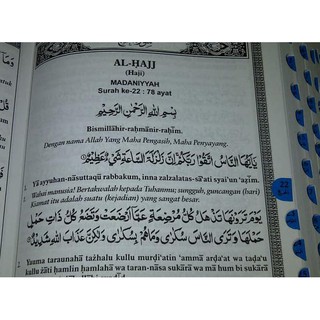 AL-ḤAJJ
(Haji)
MADANIYYAH
Surah ke-22 : 78 ayat
بِسْمِ اللهِ الرَّحْمٰنِ الرَّحِيْمِ
Bismillāhir-raḥmānir-raḥīm.
Dengan nama Allah Yang Maha Pengasih, Maha Penyayang.
يٰٓاَيُّهَا النَّاسُ اتَّقُوْا رَبَّكُمْ اِنَّ زَلْزَلَةَ السَّاعَةِ شَيْءٌ عَظِيْمٌ
1. Yā ayyuhan-nāsuttaqū rabbakum, inna zalzalatas-sā‘ati syai'un ‘aẓīm.
Wahai manusia! Bertakwalah kepada Tuhanmu; sungguh, guncangan (hari)
Kiamat itu adalah suatu (kejadian) yang sangat besar.
يَوْمَ تَرَوْنَهَا تَذْهَلُ كُلُّ مُرْضِعَةٍ عَمَّآ اَرْضَعَتْ وَتَضَعُ كُلُّ ذَاتِ حَمْلٍ
حَمْلَهَا وَتَرَى النَّاسَ سُكٰرٰى وَمَا هُمْ بِسُكٰرٰى وَلٰكِنَّ عَذَابَ اللهِ شَدِيْدٌ
2. Yauma taraunahā tażhalu kullu murḍi‘atin ‘ammā arḍa‘at wa taḍa‘u
kullu żāti ḥamlin ḥamlahā wa taran-nāsa sukārā wa mā hum bi sukārā
22